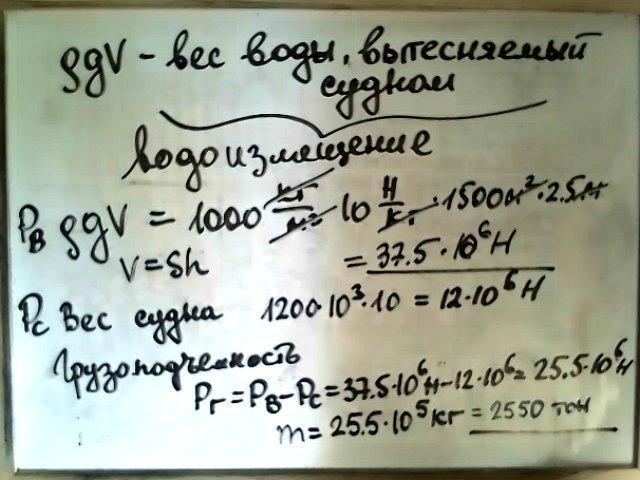 ρgV - вес воды, вытесняемый
судном
водоизмещение
Pв ρgV = 1000 кг/м³ 10 Н/кг · 1500м² · 2.5м
V = Sh = 37.5 · 10⁶ Н
Pс Вес судна 1200·10³·10 = 12·10⁶ Н
Грузоподъемность
Pг = Pв - Pс = 37.5·10⁶Н - 12·10⁶ = 25.5·10⁶Н
m = 25.5·10⁵ кг = 2550 тон